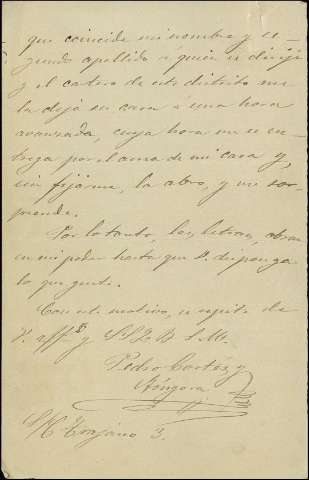 que coincide mi nombre y se-
gundo apellido á quien se dirije
y el cartero de este distrito me
la dejó en casa á una hora
avanzada, cuya hora me se en-
trega por el ama de mi casa y,
sin fijarme, la abro, y me sor-
prende.
Por lo tanto, las letras, obran
en mi poder hasta que V. disponga
lo que guste.
Con este motivo, se repite de
V. aff y S. S. Q. B. S. M.
Pedro Cortés y
Góngora
S/C Trajano 3.